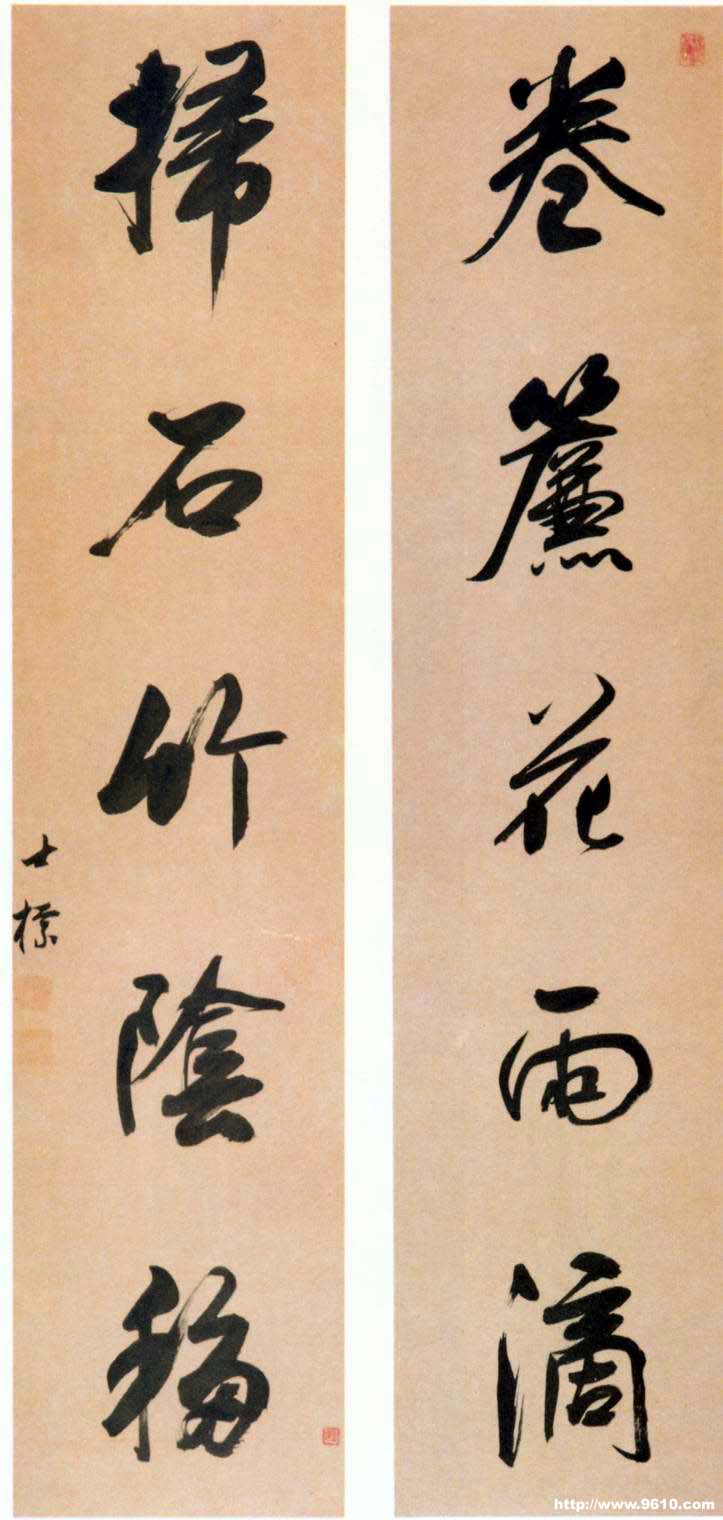 卷簾花雨滴
掃石竹陰移
士標
http://www.9610.com